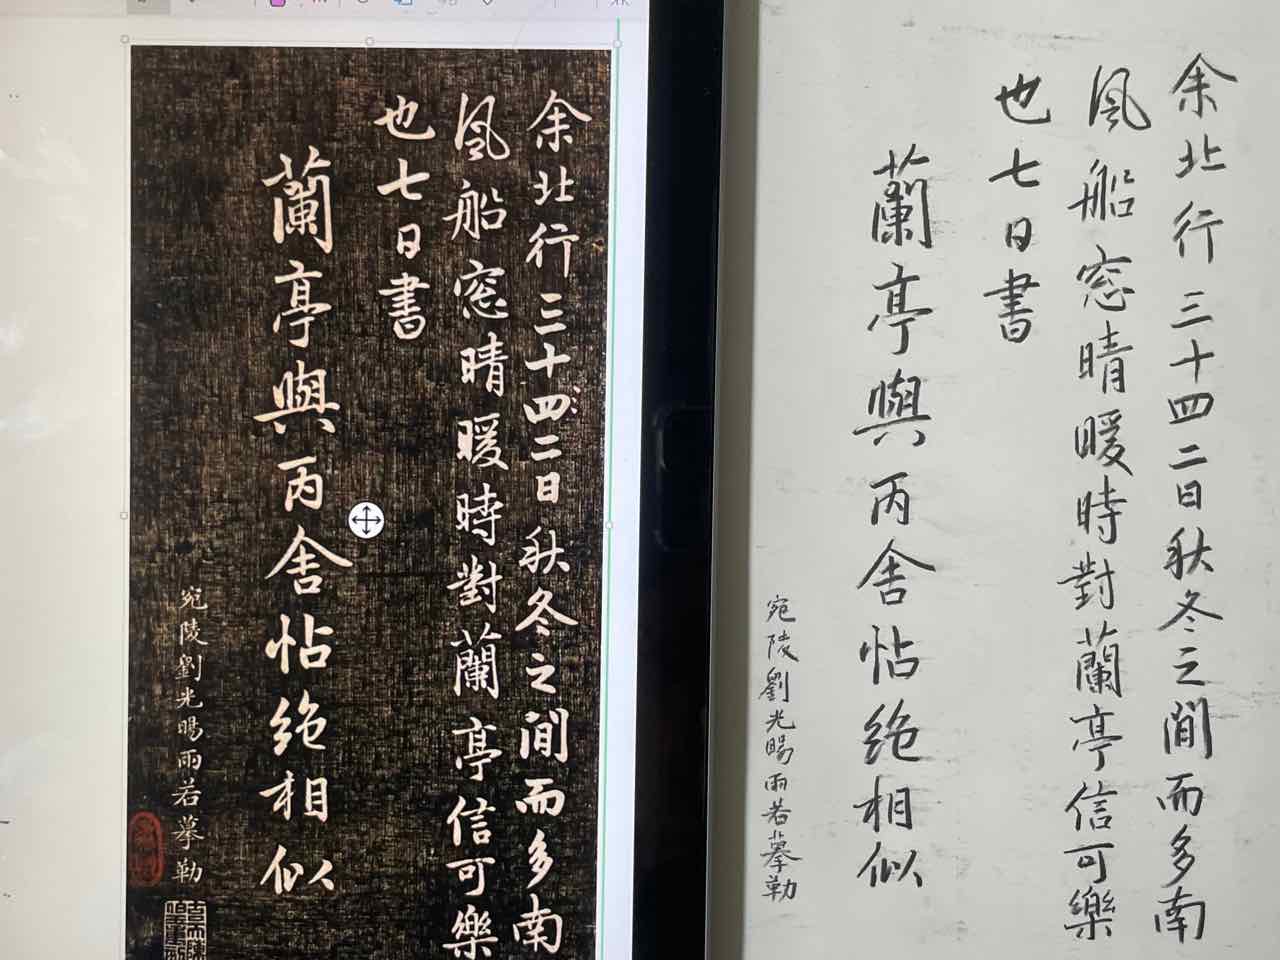 余北行三十四二日秋冬之間而多南
風船窓晴暖時對蘭亭信可樂
也七日書
蘭亭與丙舍帖絶相似
宛陵劉光暘雨若摹勒
余北行三十四二日秋冬之間而多南
風船窓晴暖時對蘭亭信可樂
也七日書
蘭亭與丙舍帖絶相似
宛陵劉光暘雨若摹勒